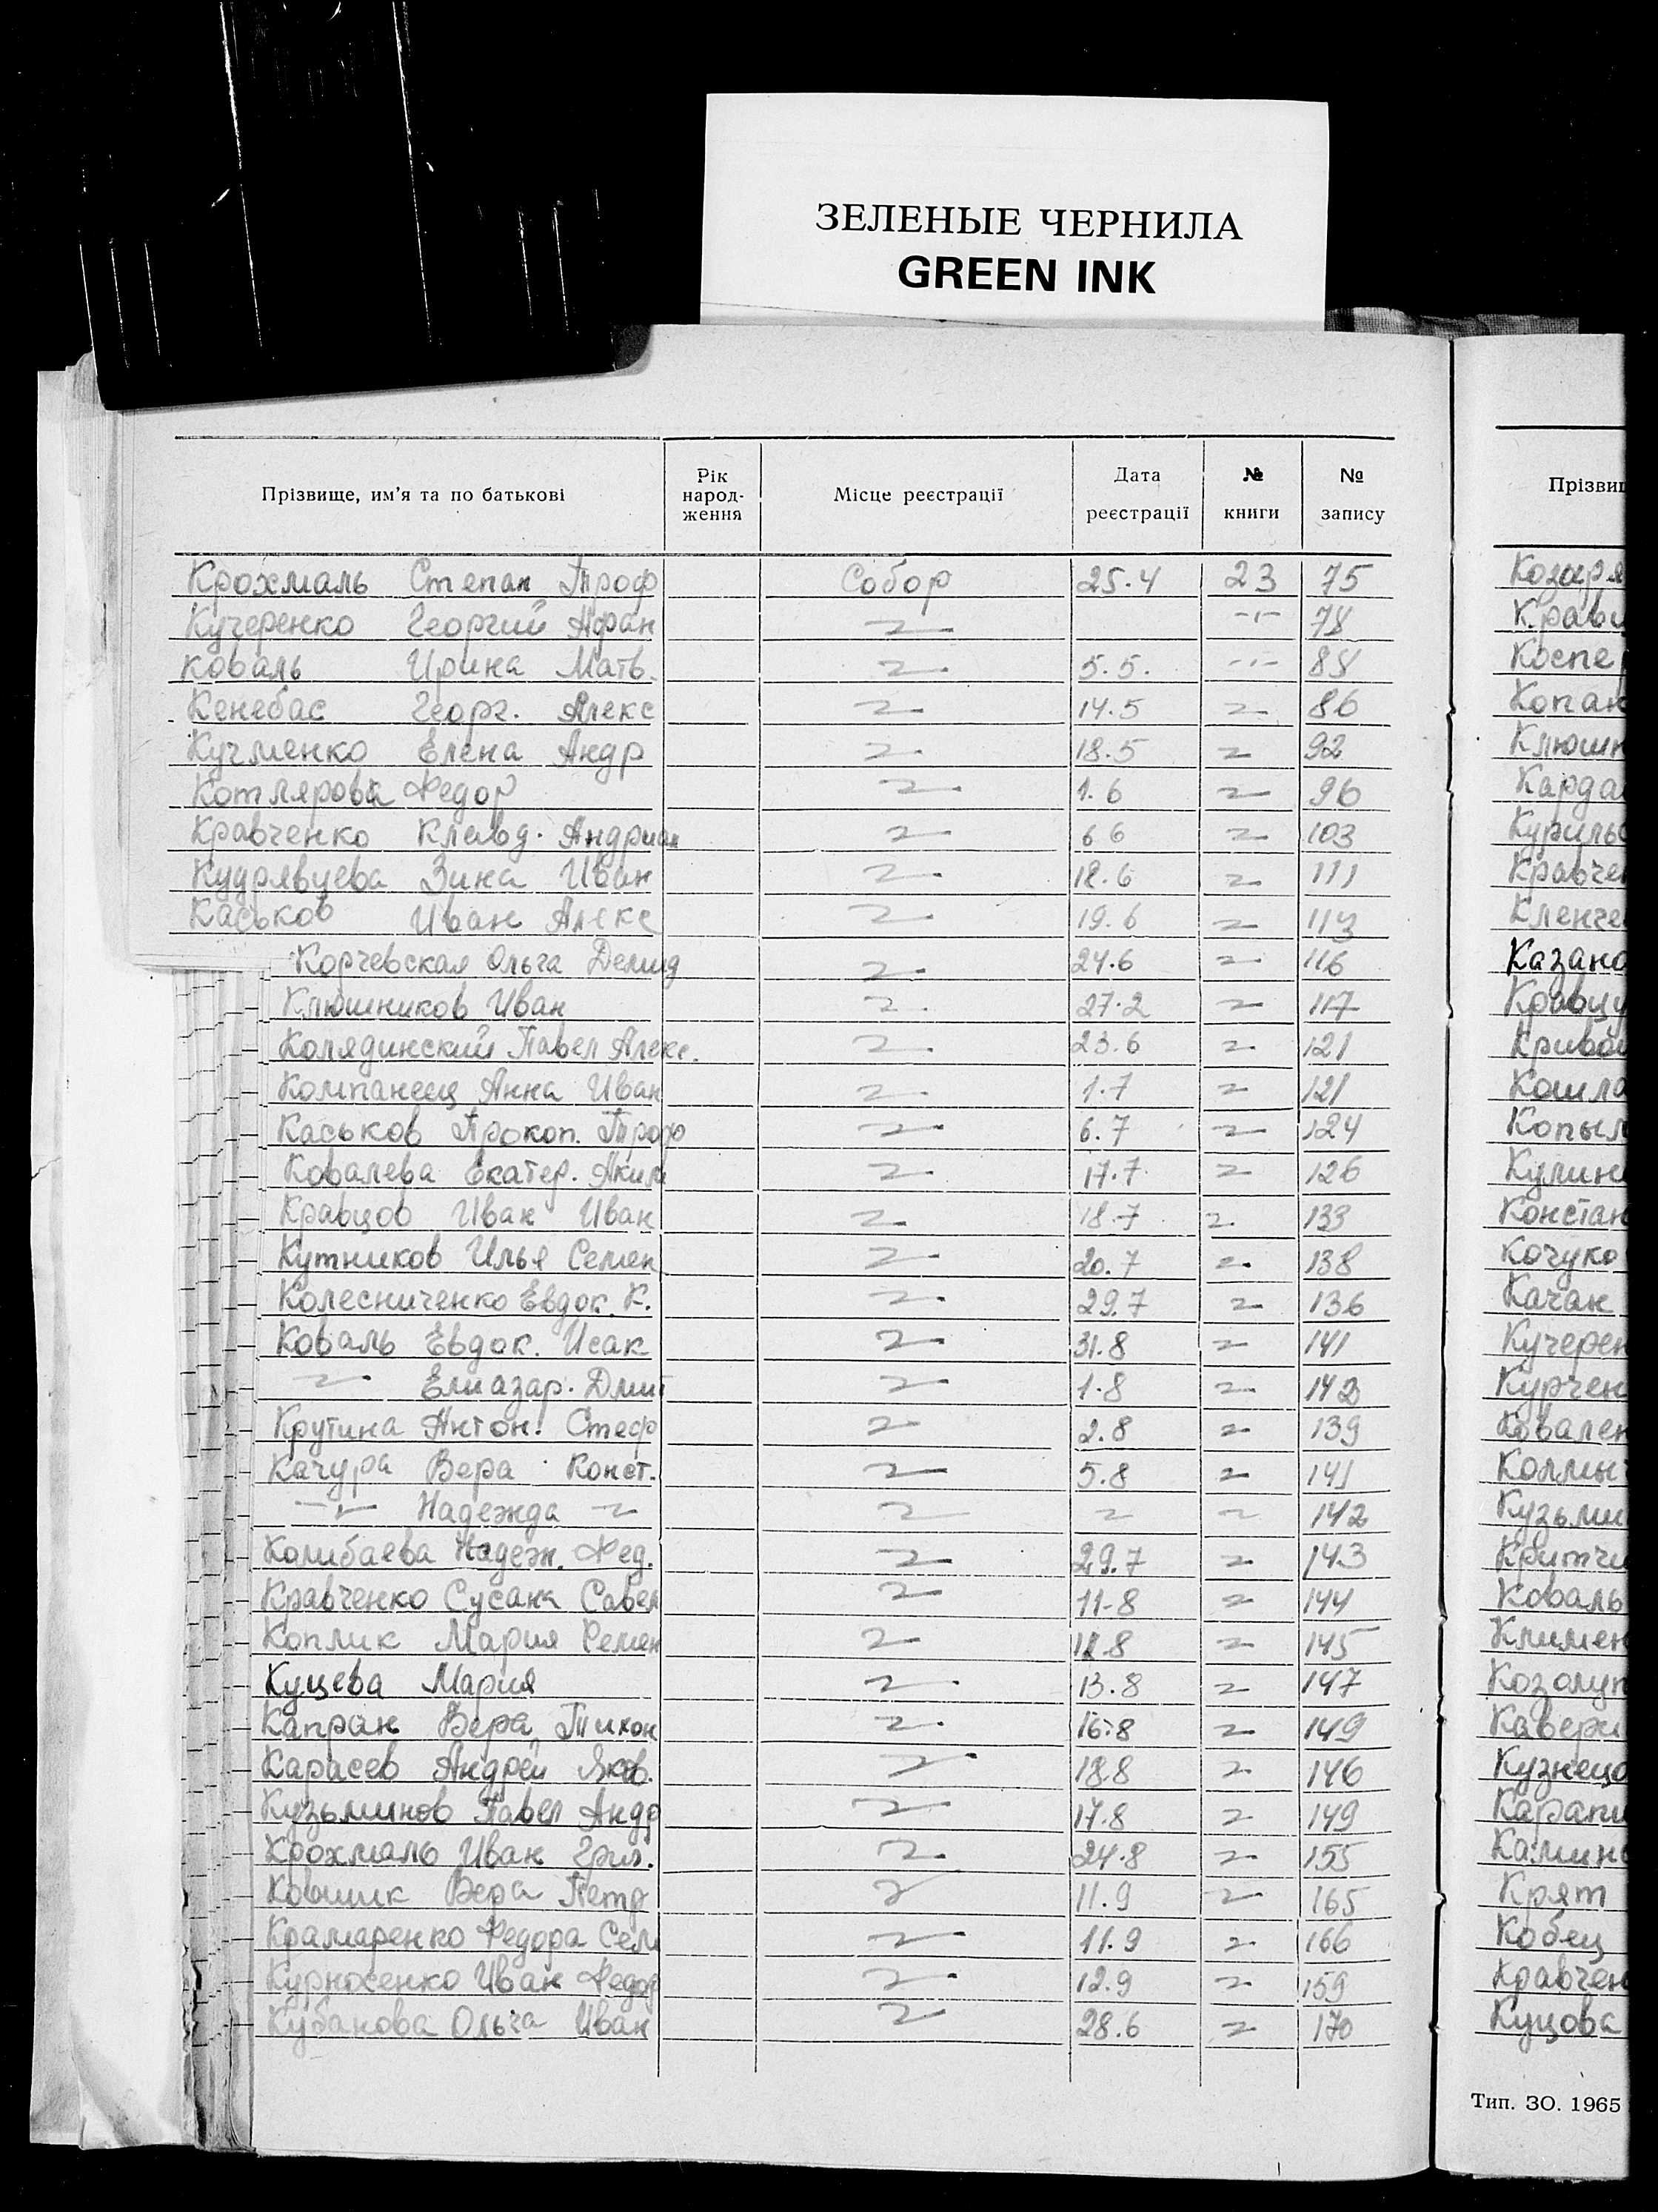 ЗЕЛЕНЫЕ ЧЕРНИЛА
GREEN INK
Прізвище, им'я та по батькові Рік народ-ження Місце реєстрації Дата реєстрації № книги № запису
Крохмаль Степан Троф Собор 25.4 23 75
Кучеренко Георгий Афан 〃 -〃- 78
Коваль Ирина Матв. 〃 5.5. -〃- 85
Кенебас Георг. Алекс 〃 14.5 〃 86
Кучменко Елена Андр 〃 18.5 〃 92
Котлярова Федор 〃 1.6 〃 96
Кравченко Клавд. Андриан 〃 6 6 〃 103
Кудрявцева Зина Иван 〃 18.6 〃 111
Каськов Иван Алекс 〃 19.6 〃 113
Корчевская Ольга Демид 〃 24.6 〃 116
Клюшников Иван 〃 27.2 〃 117
Колядинский Павел Алекс. 〃 23.6 〃 121
Компанеец Анна Иван 〃 1.7 〃 121
Каськов Прокоп. Троф 〃 6.7 〃 124
Ковалева Екатер. Аким 〃 17.7 〃 126
Кравцов Иван Иван 〃 18.7 〃 133
Кутников Илья Семен 〃 20.7 〃 138
Колесниченко Евдок. К. 〃 29.7 〃 136
Коваль Евдок. Исак 〃 31.8 〃 141
〃 Елиазар. Дмит 〃 1.8 〃 142
Крутина Антон. Стеф 〃 2.8 〃 139
Качура Вера Конст. 〃 5.8 〃 141
-〃- Надежда 〃 〃 〃 〃 142
Калибаева Надеж. Фед. 〃 29.7 〃 143
Кравченко Сусана Савел 〃 11.8 〃 144
Коплик Мария Семен 〃 12.8 〃 145
Куцева Мария 〃 13.8 〃 147
Капран Вера Тихон 〃 16.8 〃 149
Карасев Андрей Яков. 〃 18.8 〃 146
Кузьминов Павел Андр 〃 17.8 〃 149
Крохмаль Иван Григ. 〃 24.8 〃 155
Ковшик Вера Петр 〃 11.9 〃 165
Крамаренко Федора Сем 〃 11.9 〃 166
Курносенко Иван Федор 〃 12.9 〃 159
Кубанова Ольга Иван 〃 28.6 〃 170
Прізвищ
Козаря
Кравц
Коспе
Копан
Клюшн
Карда
Курильс
Кравчен
Кленче
Казано
Кравцу
Кривой
Кошла
Копыл
Кулин
Констан
Кочуко
Качан
Кучерен
Курчен
Ковален
Колмы
Кузьми
Критчи
Коваль
Климен
Козолуп
Кавери
Кузнецо
Карапи
Калин
Крят
Кобец
Кравчен
Куцова
Тип. ЗО. 1965